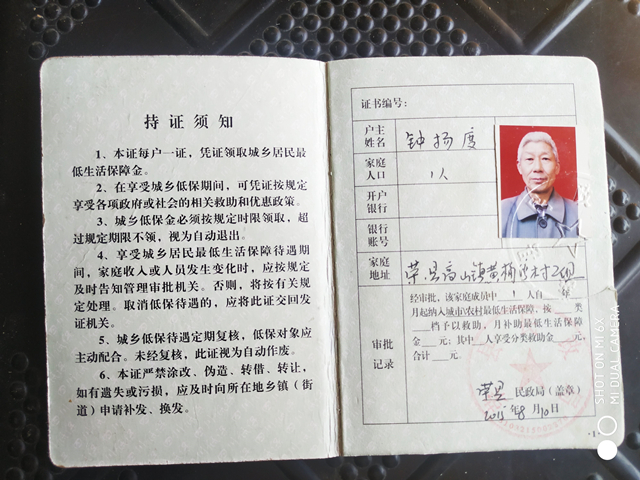 持证须知
1、本证每户一证，凭证领取城乡居民最
低生活保障金。
2、在享受城乡低保期间，可凭证按规定
享受各项政府或社会的相关救助和优惠政策。
3、城乡低保金必须按规定时限领取，超
过规定期限不领，视为自动退出。
4、享受城乡居民最低生活保障待遇期
间，家庭收入或人员发生变化时，应按规定
及时告知管理审批机关。否则，将按有关规
定处理。取消低保待遇的，应将此证交回发
证机关。
5、城乡低保待遇定期复核，低保对象应
主动配合。未经复核，此证视为自动作废。
6、本证严禁涂改、伪造、转借、转让，
如有遗失或污损，应及时向所在地乡镇（街
道）申请补发、换发。
证书编号：
户主
姓名
钟扬度
家庭
人口
1人
开户
银行
银行
账号
家庭
地址
荣县高山镇黄桷 村2组
审批
记录
经审批，该家庭成员中1人自 年
月起纳入城市\农村最低生活保障，按 类
档予以救助，月补助最低生活保障
金 元；其中 人享受分类救助金 元，
合计 元。
荣县 民政局（盖章）
2015年8月10日
·1·
SHOT ON MI 6X
MI DUAL CAMERA